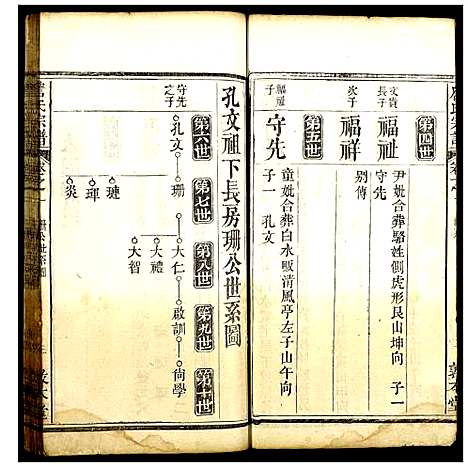 第四世
文賓
長子
福祉
尹妣合葬駱姓側虎形艮山坤向 子一
守先
次子
福祥
別傳
第五世
福祉
子
守先
童妣合葬白水畈清風亭左子山午向
子一 孔文
敦本堂
孔文祖下長房珊公世系圖
第六世 第七世 第八世 第九世 第十世
守先
之子
孔文 珊 大仁 啟訓 尙學
大禮
大智
璉
琿
炎
氏宗譜
敦本堂